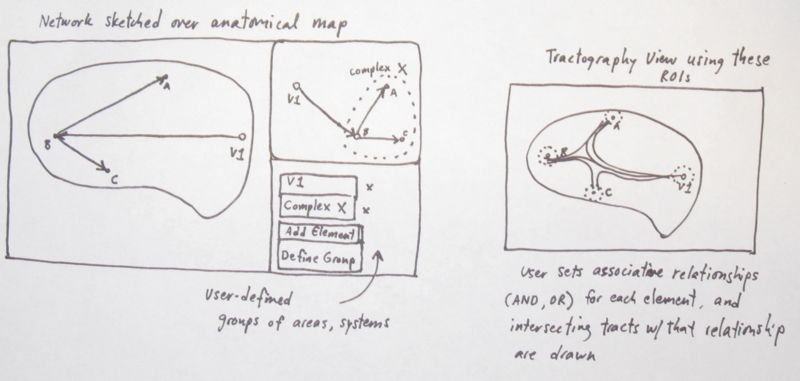 Network sketched over anatomical map
A
B
C
V1
Complex X
V1
A
B
C
V1 x
Complex X x
Add Element
Define Group
User-defined
groups of areas, systems
Tractography View using these
ROIs
A
B
C
V1
User sets associative relationships
(AND, OR) for each element, and
intersecting tracts w/ that relationship
are drawn